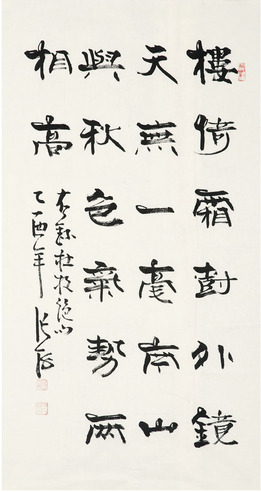 樓倚霜樹外鏡
天無一毫南山
與秋色氣勢兩
相高
右錄杜牧絕句
乙酉年